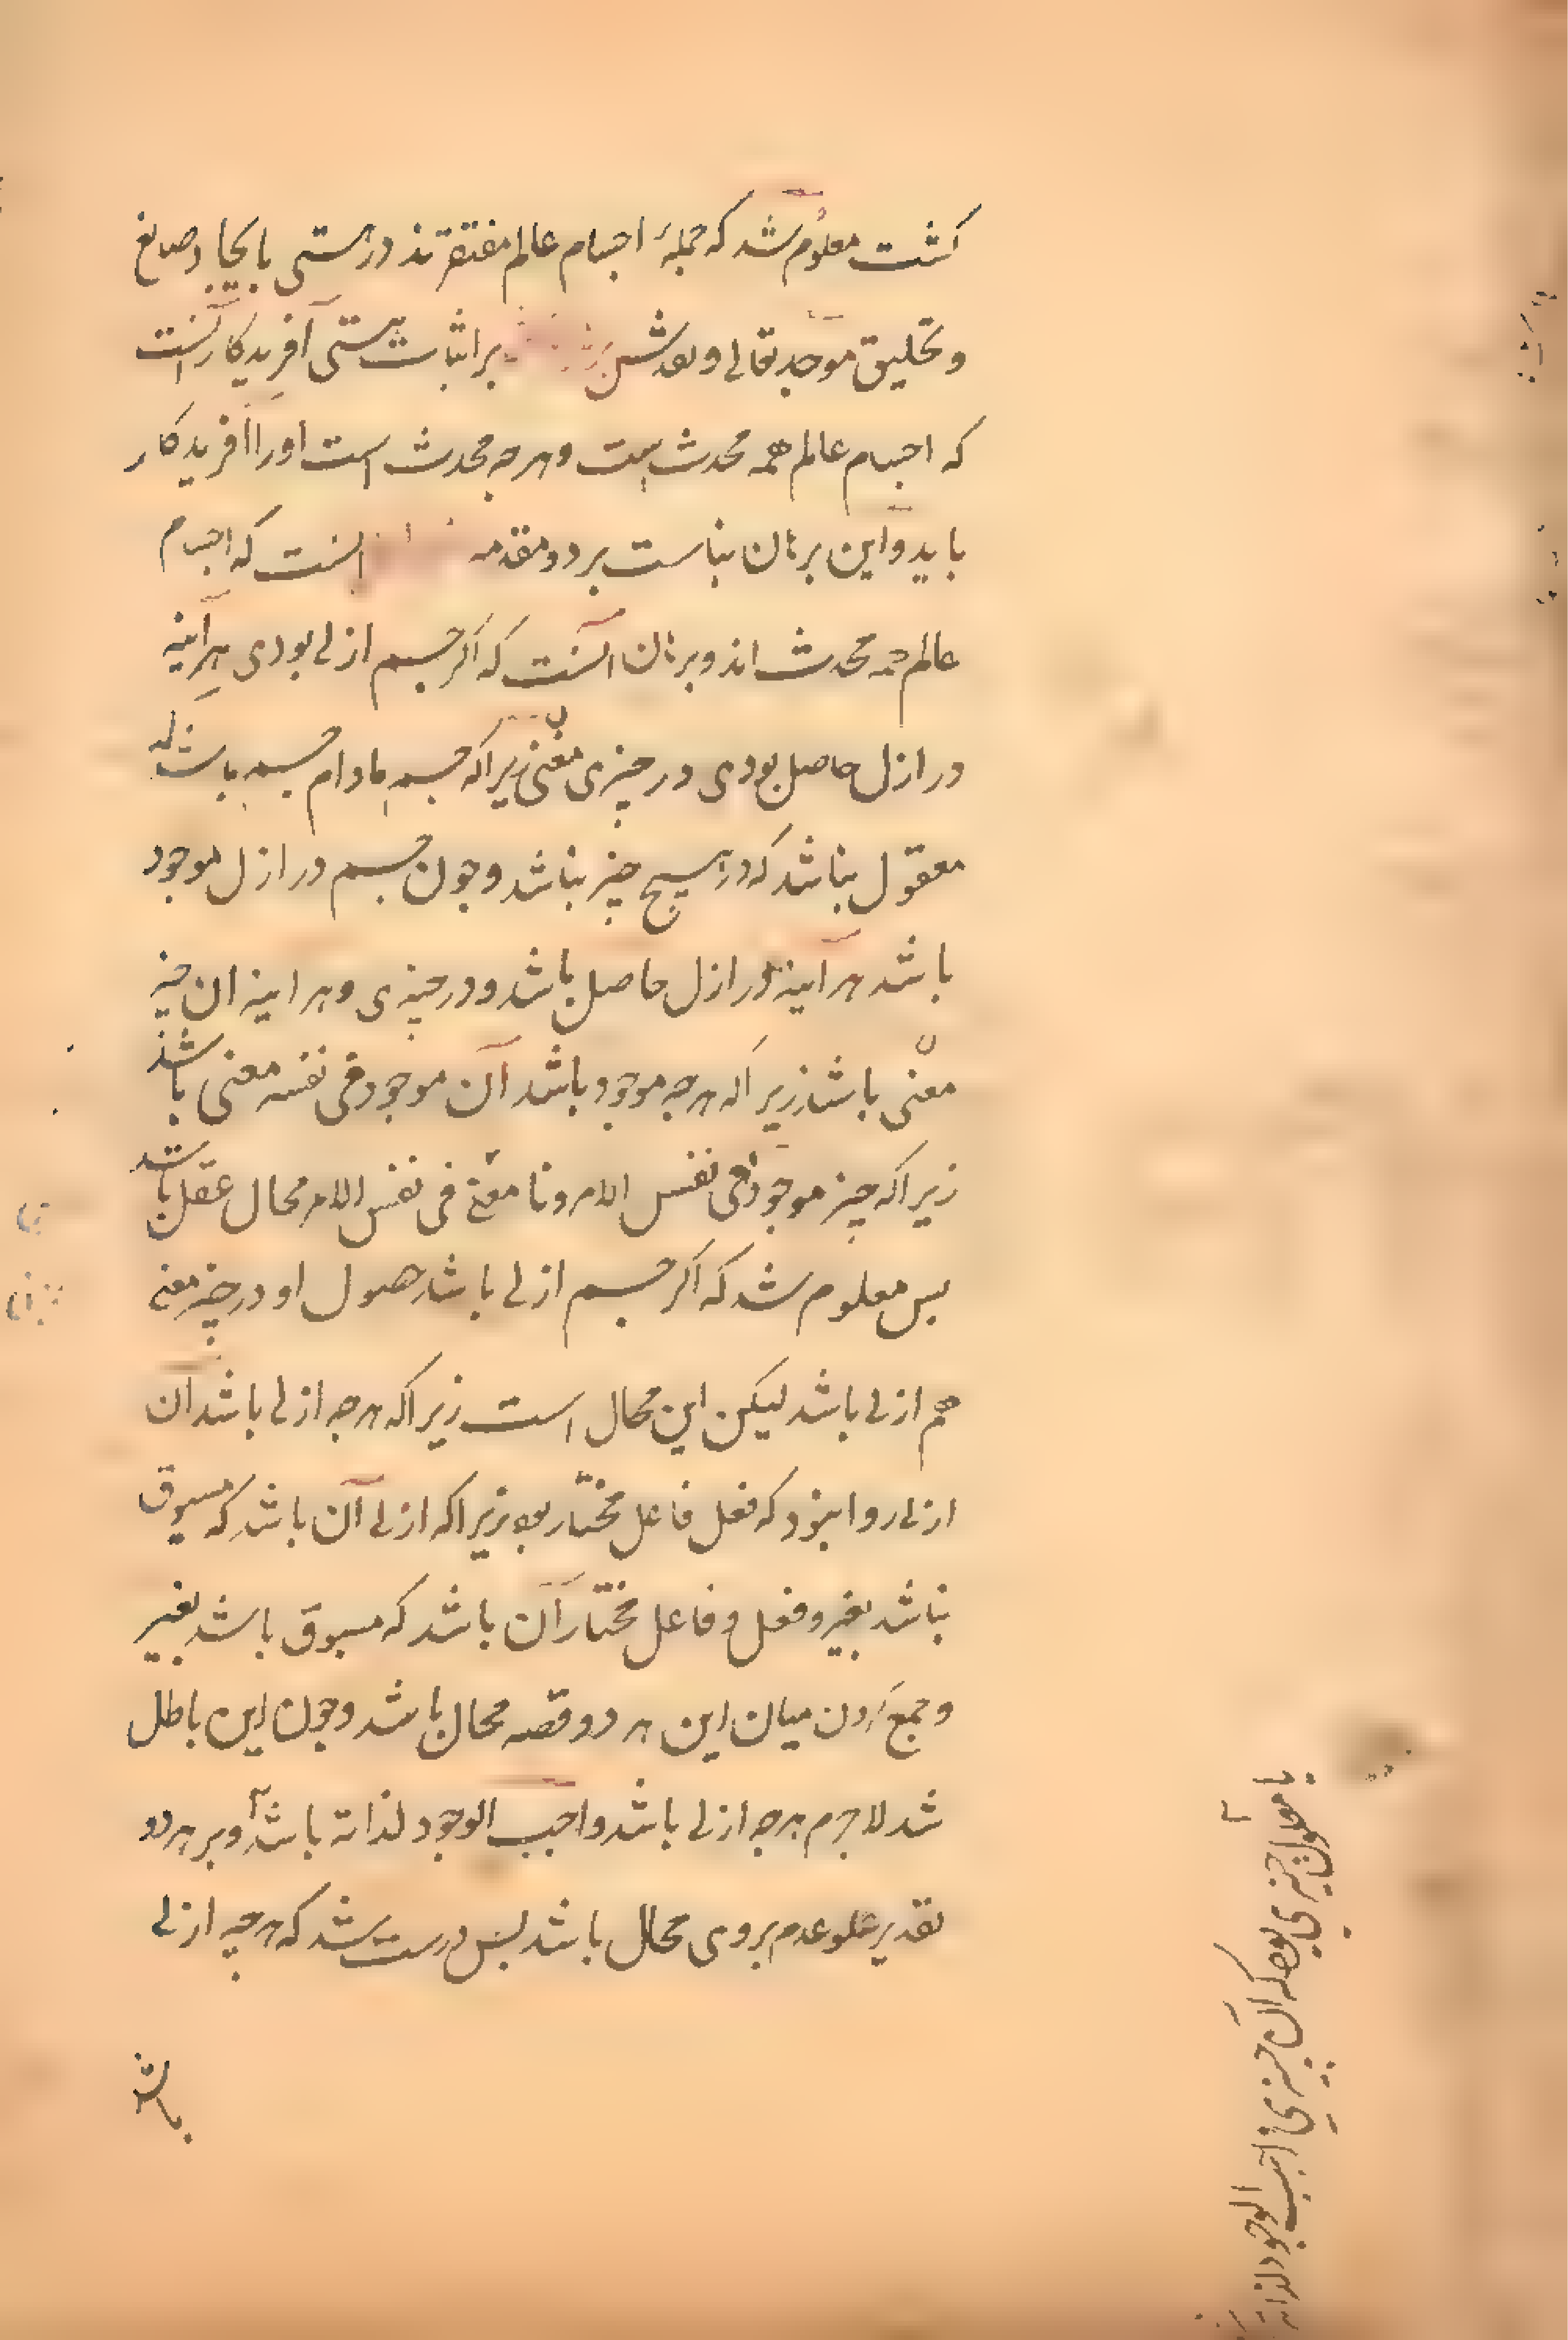 کشت معلوم شد که جملهٔ اجسام عالم مفتقرند در هستی بایجاد صانع
و تخلیق موجد تعالی و تقدس بر اثبات هستی آفریدکار آنست
که اجسام عالم همه محدث است و هرچه محدث است او را آفریدکار
باید و این برهان بناست بر دو مقدمه آنست که اجسام
عالم همه محدث اند و برهان آنست که اکر جسم ازلی بودی هرآینه
در ازل حاصل بودی در حیزی معین زیراکه جسم مادام جسم باشد
معقول نباشد که در هیچ حیز نباشد و چون جسم در ازل موجود
باشد هرآینه در ازل حاصل باشد و در حیزی و هراینه ان حیز
معین باشد زیراکه هرچه موجود باشد آن موجود فی نفسه معین باشد
زیراکه چیز موجود فی نفس الامر و نا معین فی نفس الامر محال عقل باشد
بس معلوم شد که اکر جسم ازلی باشد حصول او در حیز معین
هم ازلی باشد لیکن این محال است زیراکه هرچه ازلی باشد آن
ازلی روا نبود که فعل فاعل مختار بود زیراکه ازلی آن باشد که مسبوق
نباشد بغیر و فعل و فاعل مختار آن باشد که مسبوق باشد بغیر
و جمع کردن میان این هر دو قصه محال باشد و چون این باطل
شد لاجرم هرچه ازلی باشد واجب الوجود لذاته باشد و بر هر دو
تقدیر عدم بروی محال باشد بس درست شد که هرچه ازلی
باشد
یا معلول چیزی بود که آن چیزی واجب الوجود لذاته